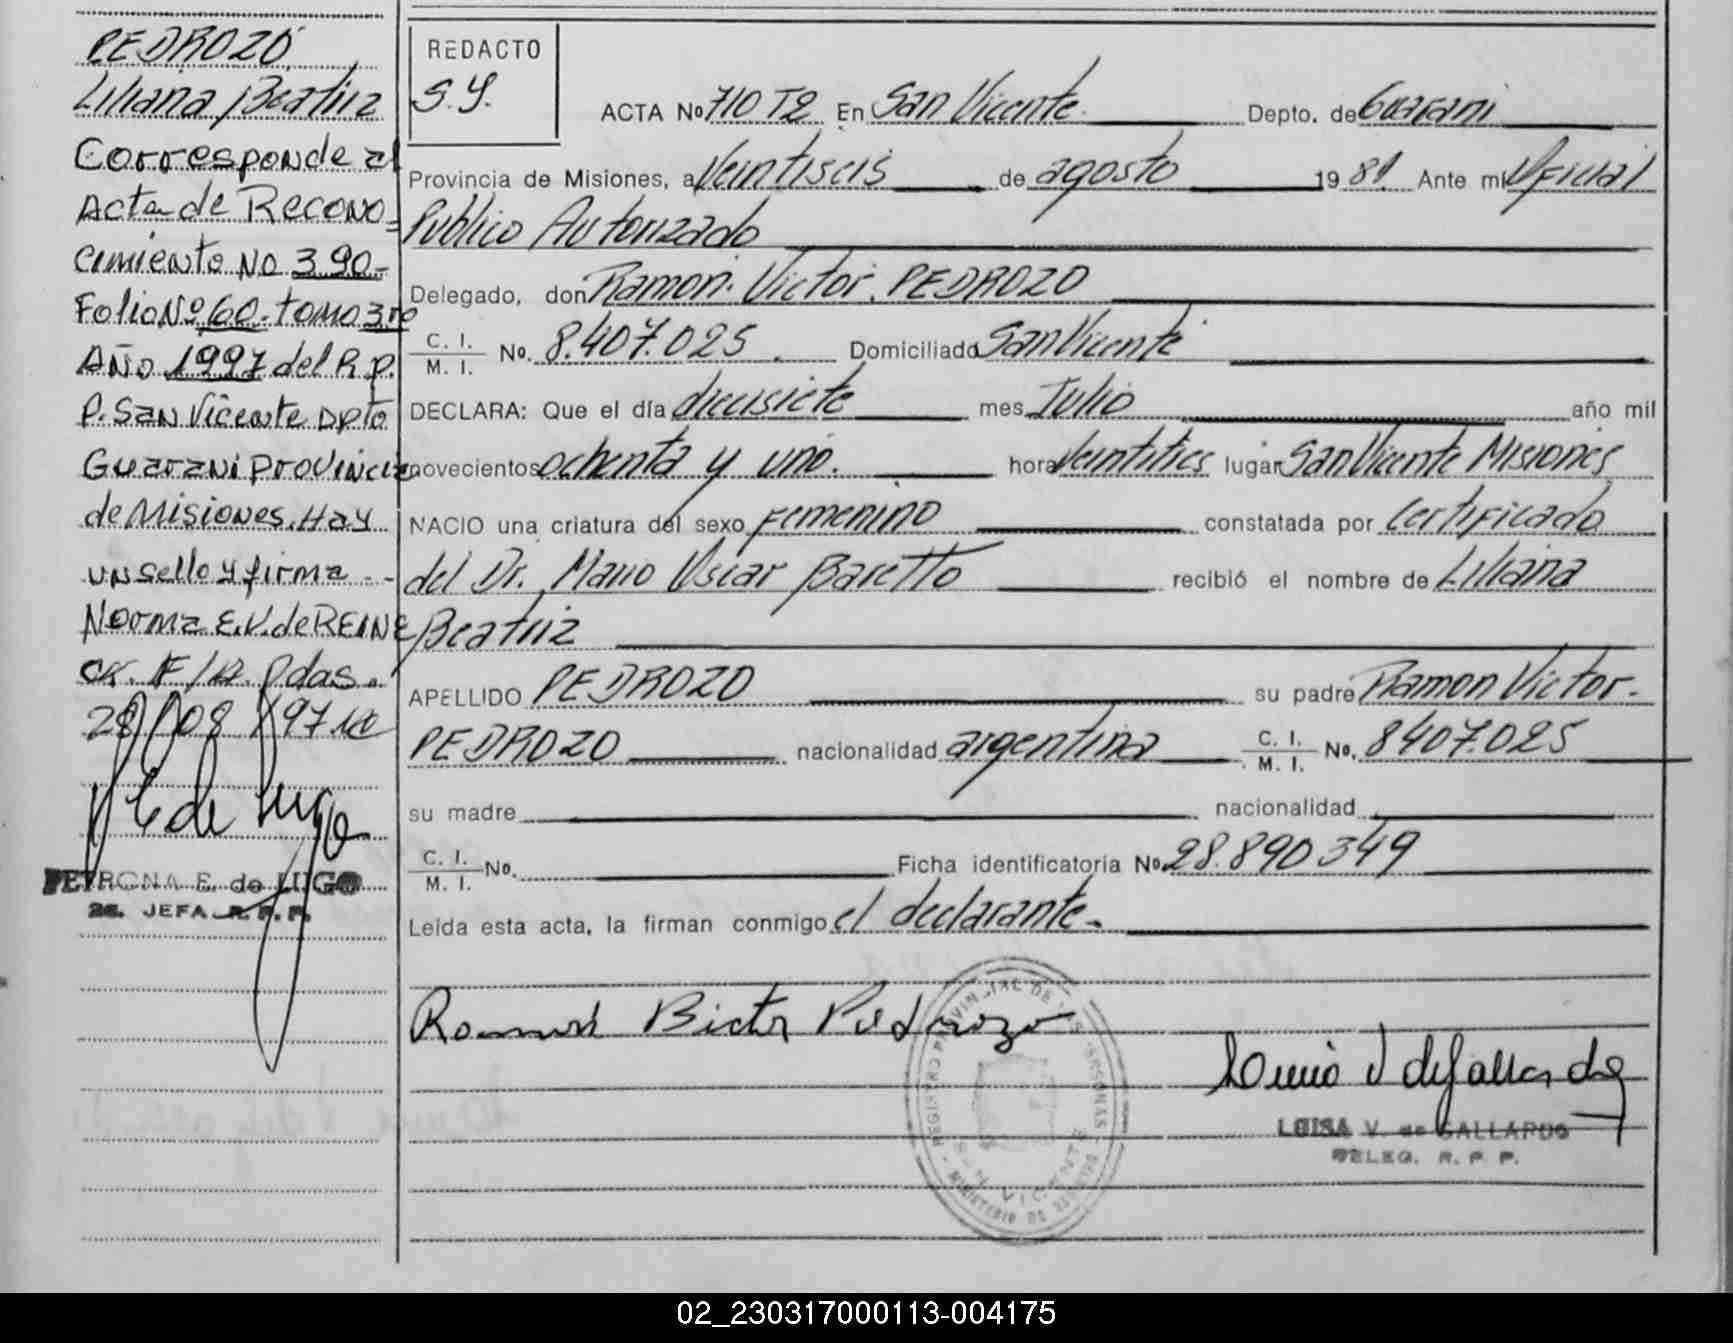 PEDROZO
Liliana Beatriz
Corresponde al
Acta de Recono-
cimiento No 390-
Folio Nº 60. tomo 3ro
Año 1997 del R.p.
P. San Vicente Dpto
Guarani provincia
de Misiones. Hay
un sello y firma --
Norma E.V. de REINE
CK. F/R. Pdas.
28/08/97
PETRONA E. de LUGO
2a. JEFA R.P.P.
REDACTO
S.Y.
ACTA No 710 T2 En San Vicente Depto. de Guarani
Provincia de Misiones, a Veintiseis de agosto 1981 Ante mi Oficial
Publico Autorizado
Delegado, don Ramon Victor PEDROZO
C. I. / M. I. No. 8.407.025 Domiciliado San Vicente
DECLARA: Que el día diecisiete mes Julio año mil
novecientos ochenta y uno. hora Veintitres lugar San Vicente Misiones
NACIO una criatura del sexo femenino constatada por Certificado
del Dr. Mario Oscar Baretto recibió el nombre de Liliana
Beatriz
APELLIDO PEDROZO su padre Ramon Victor.
PEDROZO nacionalidad argentina C. I. / M. I. No. 8407.025
su madre nacionalidad
C. I. / M. I. No. Ficha identificatoria No. 28.890349
Leída esta acta, la firman conmigo el declarante.
Ramon Bictor Pedrozo
REGISTRO PROVINCIAL DE LAS PERSONAS - MINISTERIO DE GOBIERNO
SAN VICENTE
LUISA V. de GALLARDO
DELEG. R. P. P.
02_230317000113-004175